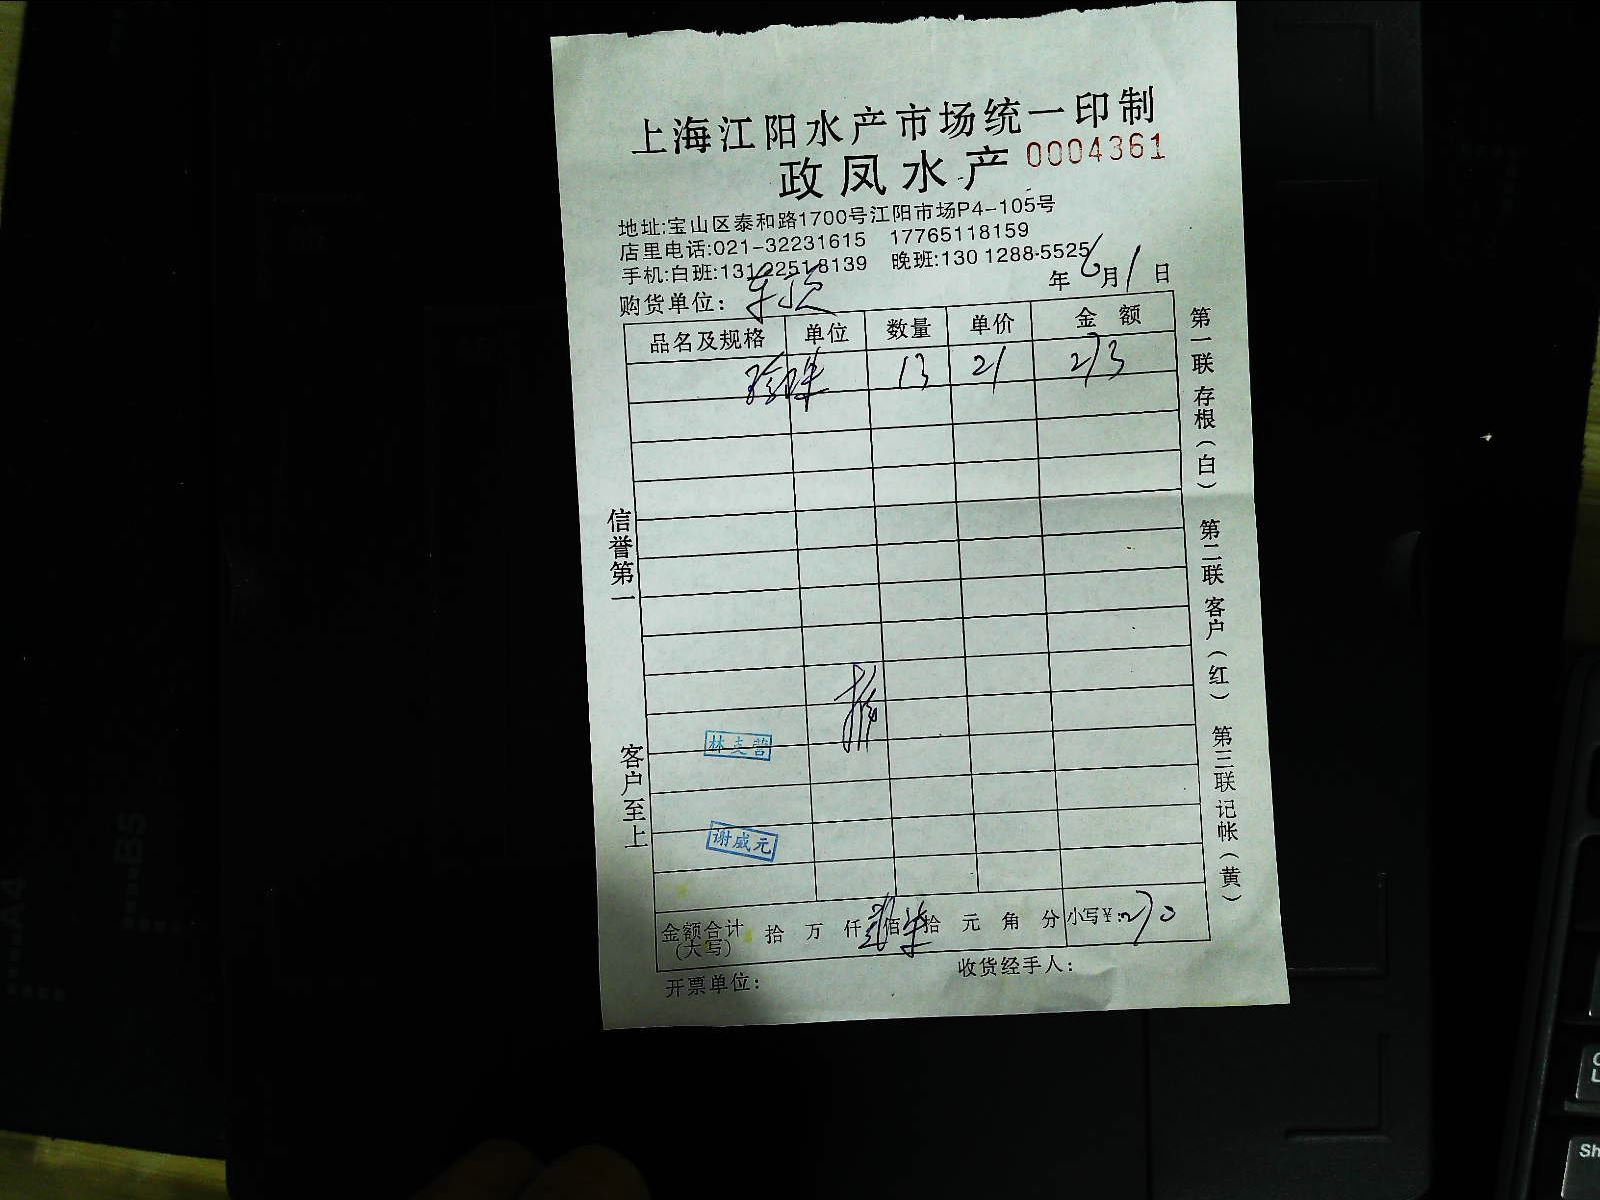 上海江阳水产市场统一印制
政凤水产 0004361
地址:宝山区泰和路1700号江阳市场P4-105号
店里电话:021-32231615 17765118159
手机:白班:13122518139 晚班:130 1288-5525
年6月1日
购货单位:
品名及规格 单位 数量 单价 金额
珍珠 13 21 273
信誉第一
客户至上
林支营
谢威元
金额合计(大写) 拾 万 仟 贰佰柒拾 元 角 分 小写¥:270
开票单位: 收货经手人:
第一联 存根(白) 第二联 客户(红) 第三联 记帐(黄)
A4
B5
Sh